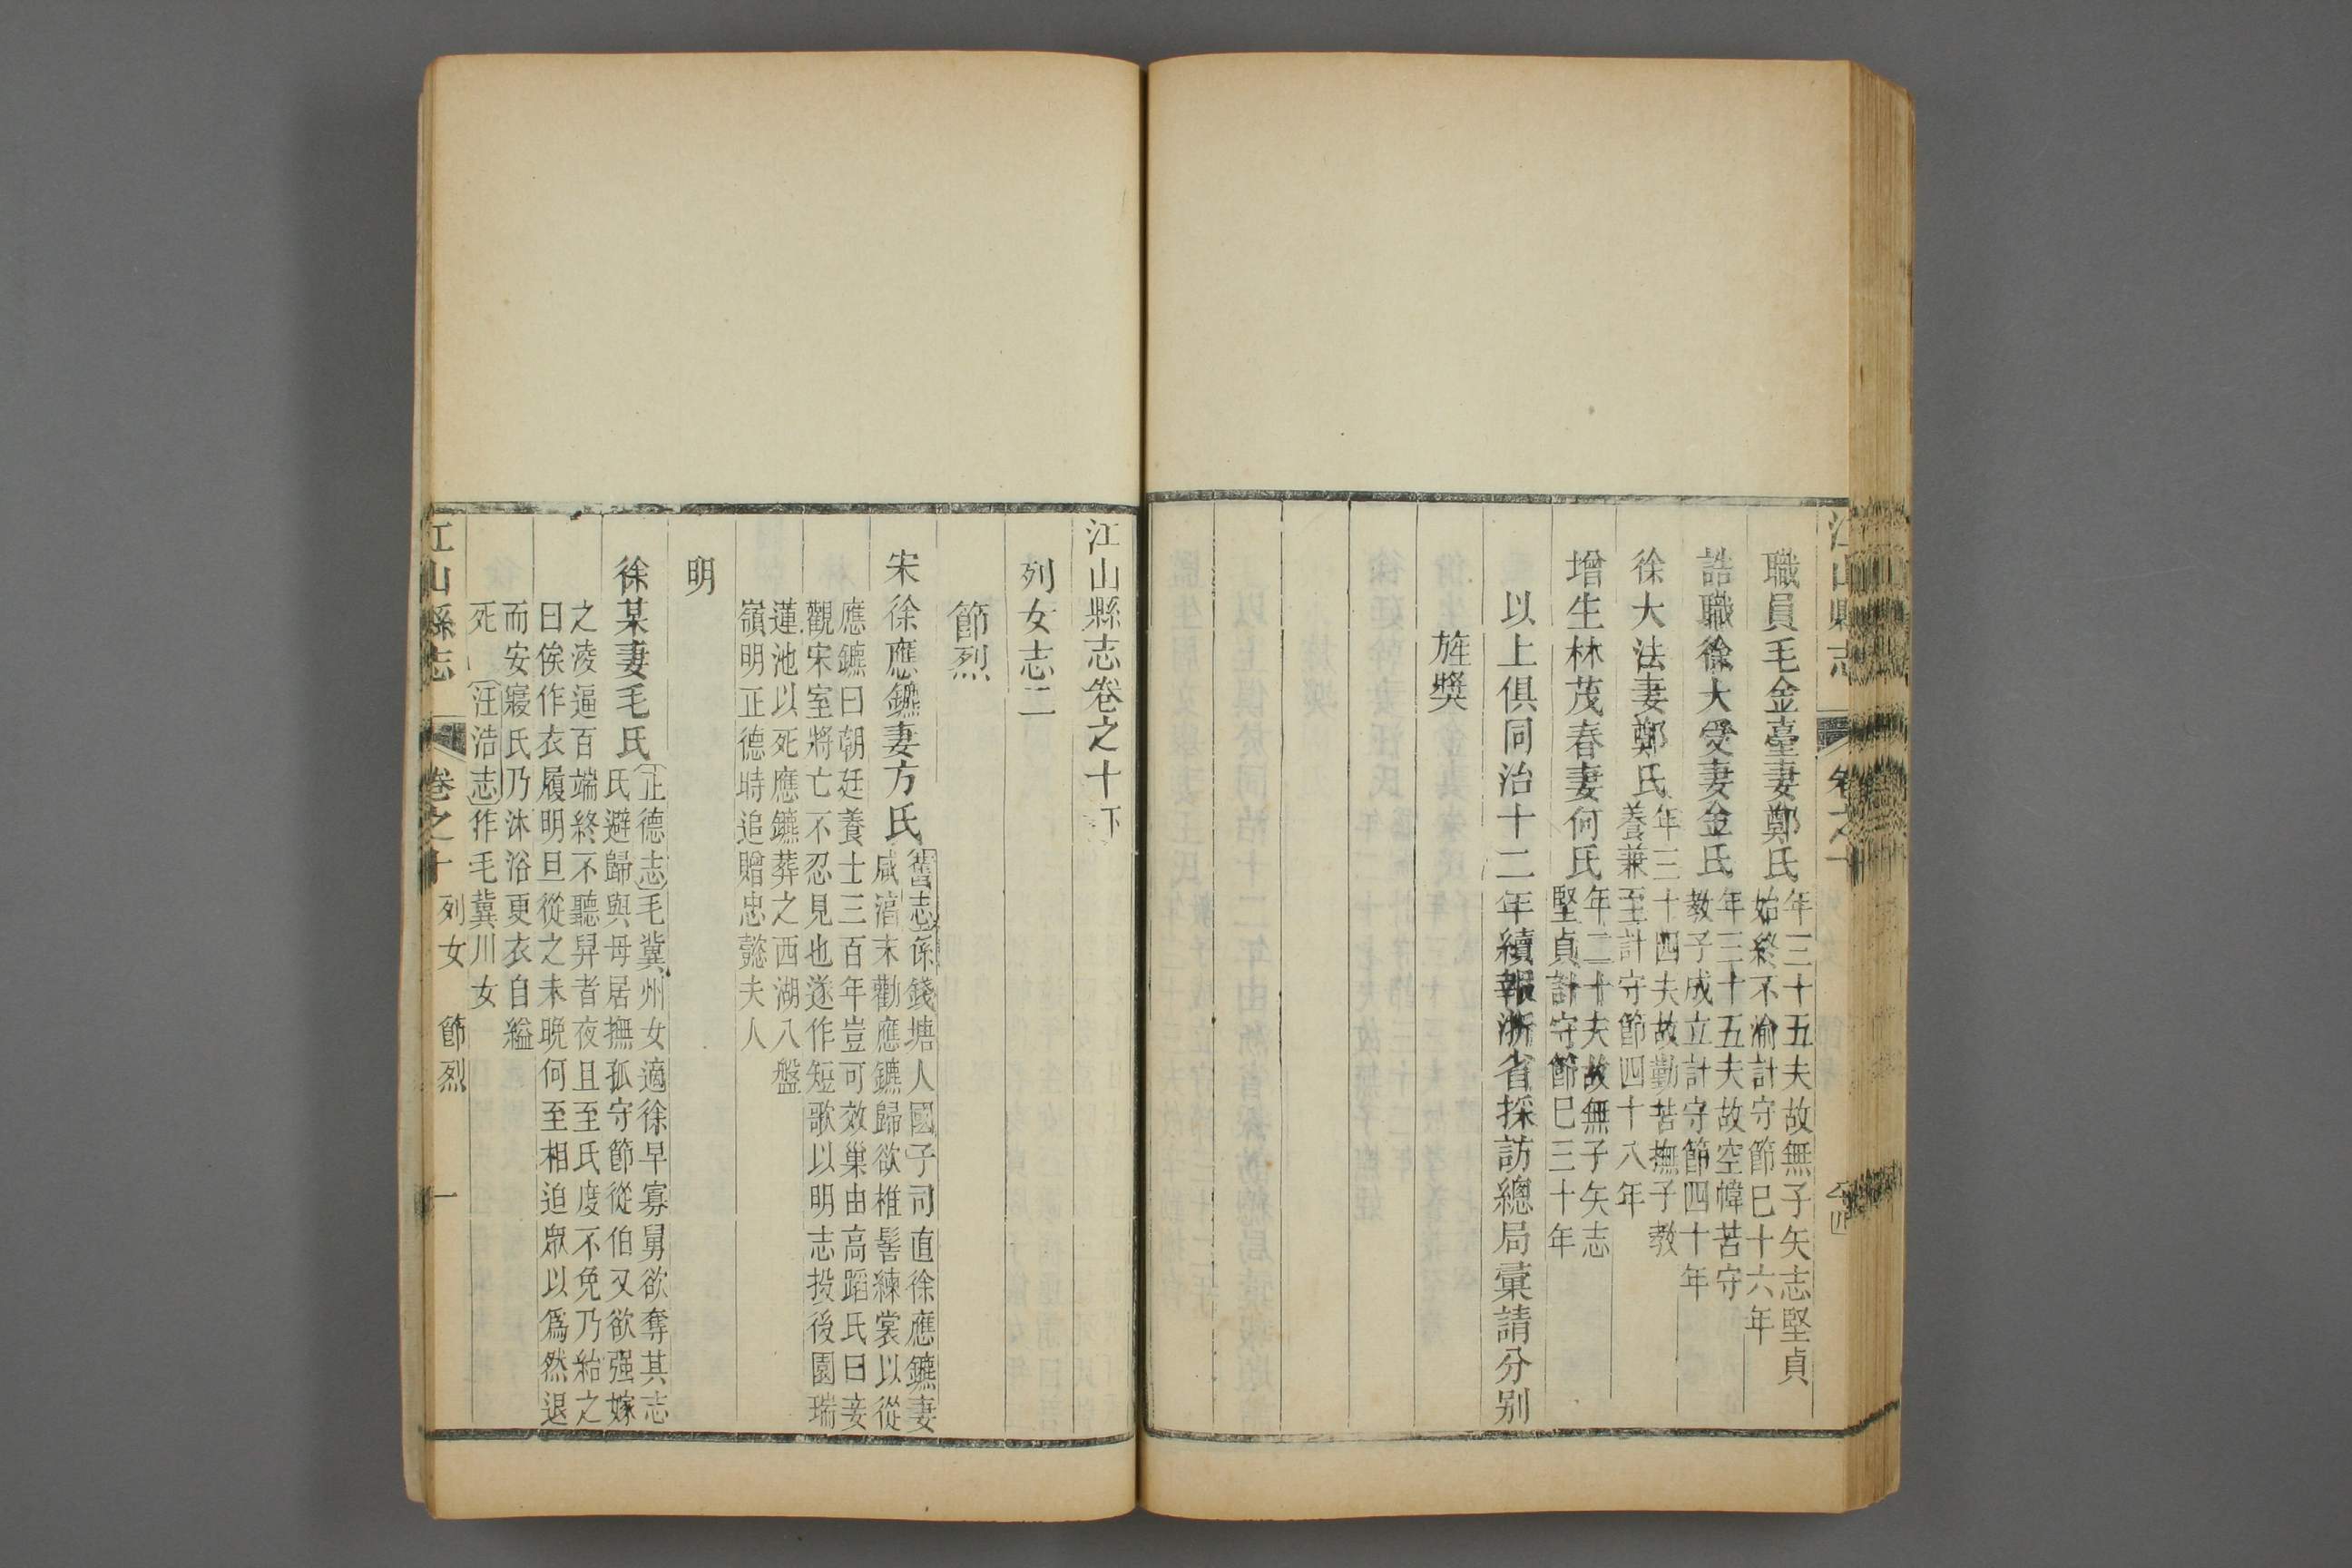 職員毛金臺妻鄭氏
年三十五夫故無子矢志堅貞
始終不渝計守節巳十六年
誥職徐大受妻金氏
年三十五夫故空幃苦守
教子成立計守節四十年
徐大法妻鄭氏
年三十四夫故勤苦撫子教
養兼至計守節四十八年
增生林茂春妻何氏
年二十夫故無子矢志
堅貞計守節巳三十年
以上俱同治十二年續報浙省採訪總局彙請分别
旌獎
江山縣志卷之十下
列女志二
節烈
宋
徐應鑣妻方氏
舊志係錢塘人國子司直徐應鑣妻
咸淳末勸應鑣歸欲椎髻練裳以從
應鑣曰朝廷養士三百年豈可效巢由高蹈氏曰妾
觀宋室將亡不忍見也遂作短歌以明志投後園瑞
蓮池以死應鑣葬之西湖八盤
嶺明正德時追贈忠懿夫人
明
徐某妻毛氏
正德志毛冀州女適徐早寡舅欲奪其志
氏避歸與母居撫孤守節從伯又欲强嫁
之淩逼百端終不聽舁者夜且至氏度不免乃紿之
曰俟作衣履明旦從之未晚何至相迫眾以爲然退
而安寢氏乃沐浴更衣自縊
死 汪浩志作毛冀川女
江山縣志 卷之十 列女 節烈 一